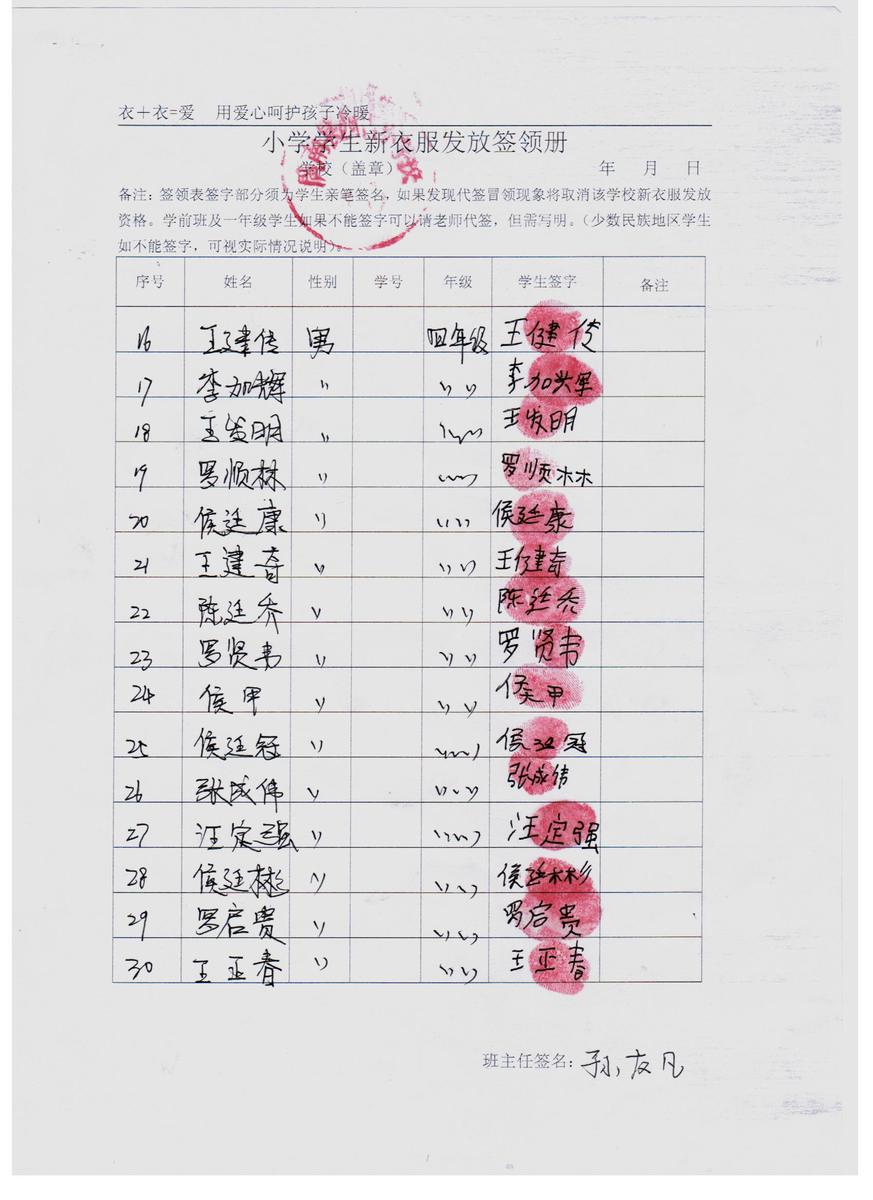 衣+衣=爱 用爱心呵护孩子冷暖
小学学生新衣服发放签领册
学校（盖章） 年 月 日
备注：签领表签字部分须为学生亲笔签名，如果发现代签冒领现象将取消该学校新衣服发放
资格。学前班及一年级学生如果不能签字可以请老师代签，但需写明。（少数民族地区学生
如不能签字，可视实际情况说明）。
序号 姓名 性别 学号 年级 学生签字 备注
16 王建传 男 四年级 王健
17 李加辉 〃 〃〃 李加辉
18 王发明 〃 〃〃 王发明
19 罗顺林 〃 〃〃 罗顺林
20 侯廷康 〃 〃〃 侯廷康
21 王建奇 〃 〃〃 王健奇
22 陈廷乔 〃 〃〃 陈廷乔
23 罗贤韦 〃 〃〃 罗贤韦
24 侯甲 〃 〃〃 侯甲
25 侯廷冠 〃 〃〃 侯廷冠
26 张成伟 〃 〃〃 张成伟
27 汪定强 〃 〃〃 汪定强
28 侯廷彬 〃 〃〃 侯廷彬
29 罗启贵 〃 〃〃 罗启贵
30 王正春 〃 〃〃 王正春
班主任签名：孙友凡